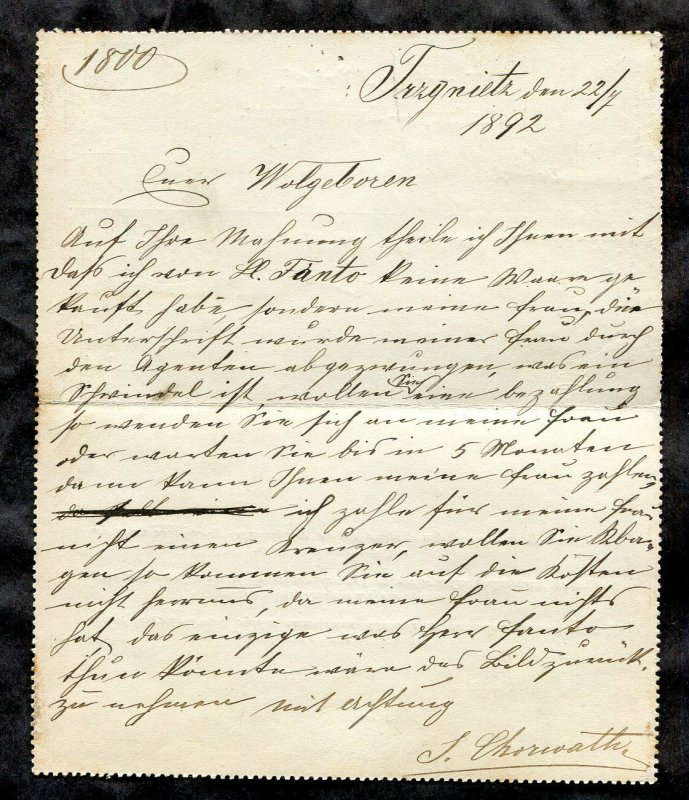 1800
Trzynietz den 22/7
1892
Euer Wolgeboren
Auf Ihre Mahnung theile ich Ihnen mit
dass ich von H. Fanto keine Waare ge
kauft habe, sondern meine Frau, die
Unterschrift wurde meiner Frau durch
den Agenten abgezwungen, was ein
Schwindel ist, wollen Sie eine bezahlung
so wenden Sie sich an meine Frau
oder warten Sie bis in 5 Monaten
dann kann Ihnen meine Frau zahlen,
ich zahle für meine Frau
nicht einen Kreuzer, wollen Sie Kla-
gen so kommen Sie auf die Kosten
nicht herraus, da meine Frau nichts
hat, das einzige was Herr Fanto
thun könnte wäre das Bild zurück
zu nehmen mit Achtung
Chorwath